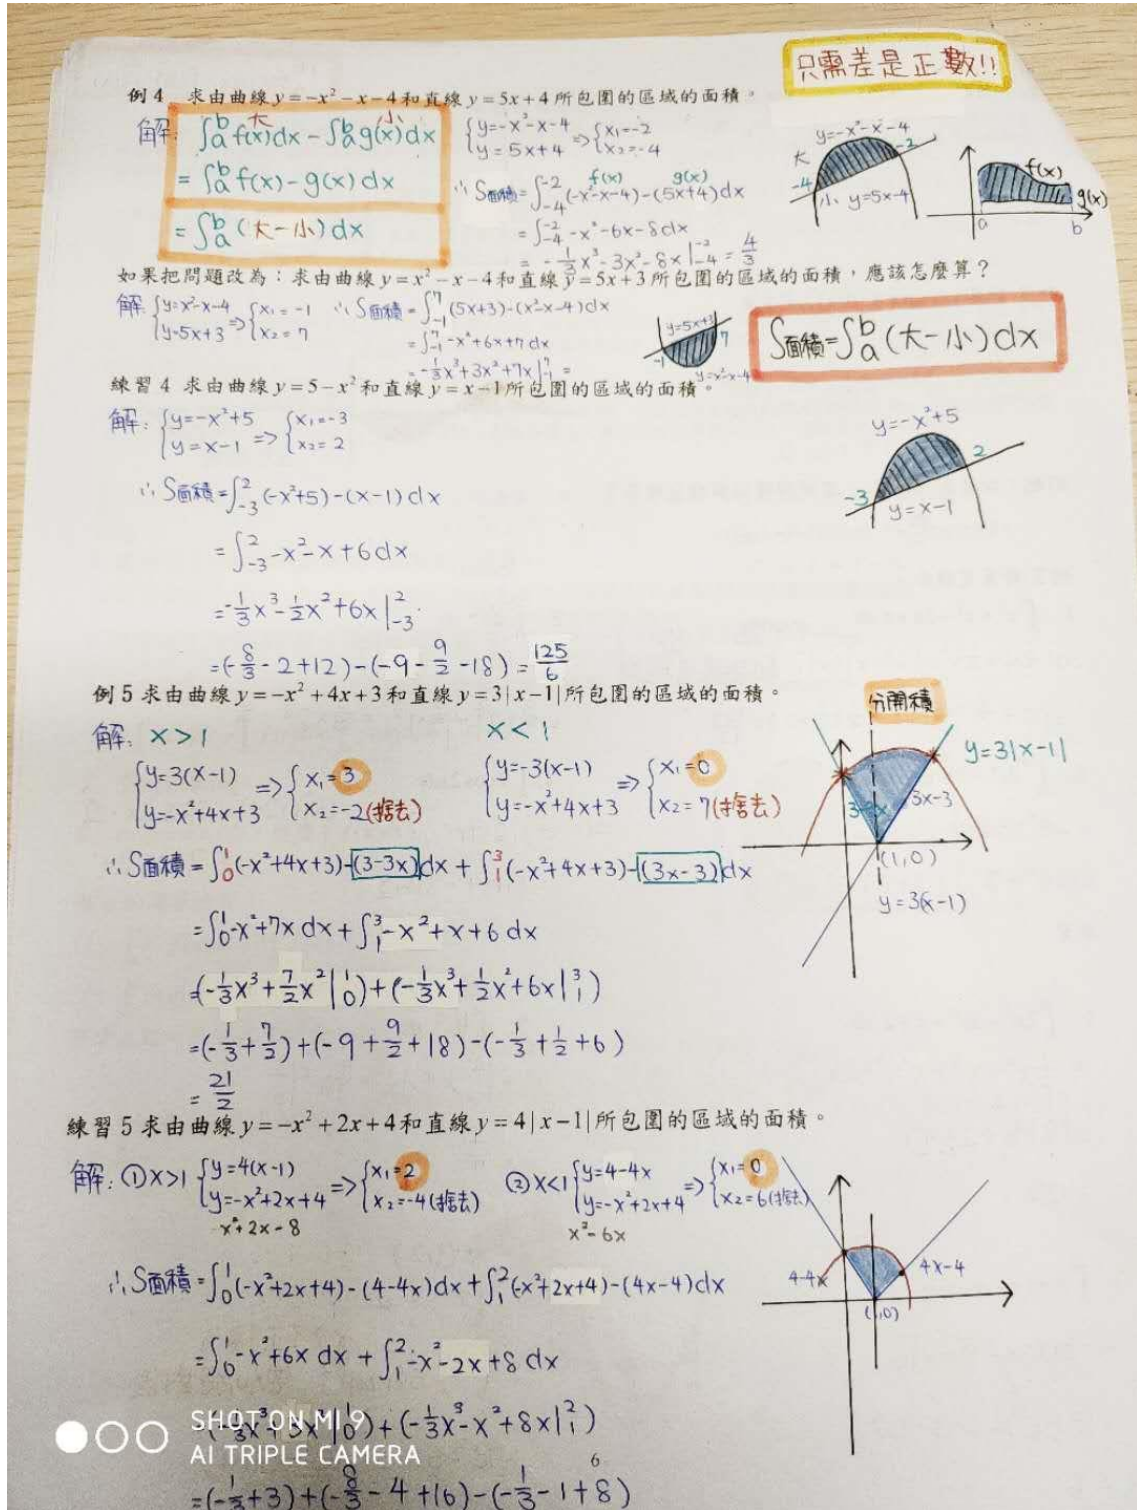 只需差是正數!!
例4 求由曲線 y=-x²-x-4 和直線 y=5x+4 所包圍的區域的面積。
解: ∫ₐᵇ f(x)dx - ∫ₐᵇ g(x)dx
大 小
= ∫ₐᵇ f(x)-g(x) dx
= ∫ₐᵇ (大-小)dx
{y=-x²-x-4 {x₁=-2
{y=5x+4 => {x₂=-4
f(x) g(x)
∴ S面積 = ∫₋₄⁻² (-x²-x-4)-(5x+4)dx
= ∫₋₄⁻² -x²-6x-8dx
= -1/3x³-3x²-8x|₋₄⁻² = 4/3
y=-x²-x-4
大 -2
-4
小 y=5x-4
f(x)
g(x)
a b
如果把問題改為:求由曲線 y=x²-x-4 和直線 y=5x+3 所包圍的區域的面積,應該怎麼算?
解 {y=x²-x-4 {x₁=-1
{y=5x+3 => {x₂=7
∴ S面積 = ∫₋₁⁷ (5x+3)-(x²-x-4)dx
= ∫₋₁⁷ -x²+6x+7dx
= -1/3x³+3x²+7x|₋₁⁷ =
y=5x+3
-1 7
y=x²-x-4
S面積=∫ₐᵇ(大-小)dx
練習4 求由曲線 y=5-x² 和直線 y=x-1 所包圍的區域的面積。
解: {y=-x²+5 {x₁=-3
{y=x-1 => {x₂=2
∴ S面積=∫₋₃² (-x²+5)-(x-1)dx
= ∫₋₃² -x²-x+6dx
= -1/3x³-1/2x²+6x|₋₃²
= (-8/3-2+12)-(-9-9/2-18) = 125/6
y=-x²+5
2
-3
y=x-1
例5 求由曲線 y=-x²+4x+3 和直線 y=3|x-1| 所包圍的區域的面積。
解: x>1 x<1
{y=3(x-1) {x₁=3
{y=-x²+4x+3 => {x₂=-2(捨去)
{y=-3(x-1) {x₁=0
{y=-x²+4x+3 => {x₂=7(捨去)
∴ S面積=∫₀¹(-x²+4x+3)-(3-3x)dx + ∫₁³(-x²+4x+3)-(3x-3)dx
= ∫₀¹-x²+7x dx + ∫₁³-x²+x+6 dx
= (-1/3x³+7/2x²|₀¹)+(-1/3x³+1/2x²+6x|₁³)
= (-1/3+7/2)+(-9+9/2+18)-(-1/3+1/2+6)
= 21/2
分開積
y=3|x-1|
3x-3
(1,0)
y=3(x-1)
練習5 求由曲線 y=-x²+2x+4 和直線 y=4|x-1| 所包圍的區域的面積。
解: ①x>1 {y=4(x-1) {x₁=2
{y=-x²+2x+4 => {x₂=-4(捨去)
x²+2x-8
②x<1 {y=4-4x {x₁=0
{y=-x²+2x+4 => {x₂=6(捨去)
x²-6x
∴ S面積=∫₀¹(-x²+2x+4)-(4-4x)dx+∫₁²(-x²+2x+4)-(4x-4)dx
= ∫₀¹-x²+6x dx + ∫₁²-x²-2x+8 dx
(-1/3x³+3x²|₀¹)+(-1/3x³-x²+8x|₁²)
6
= (-1/3+3)+(-8/3-4+16)-(-1/3-1+8)
4-4x
4x-4
(1,0)
SHOT ON MI 9
AI TRIPLE CAMERA